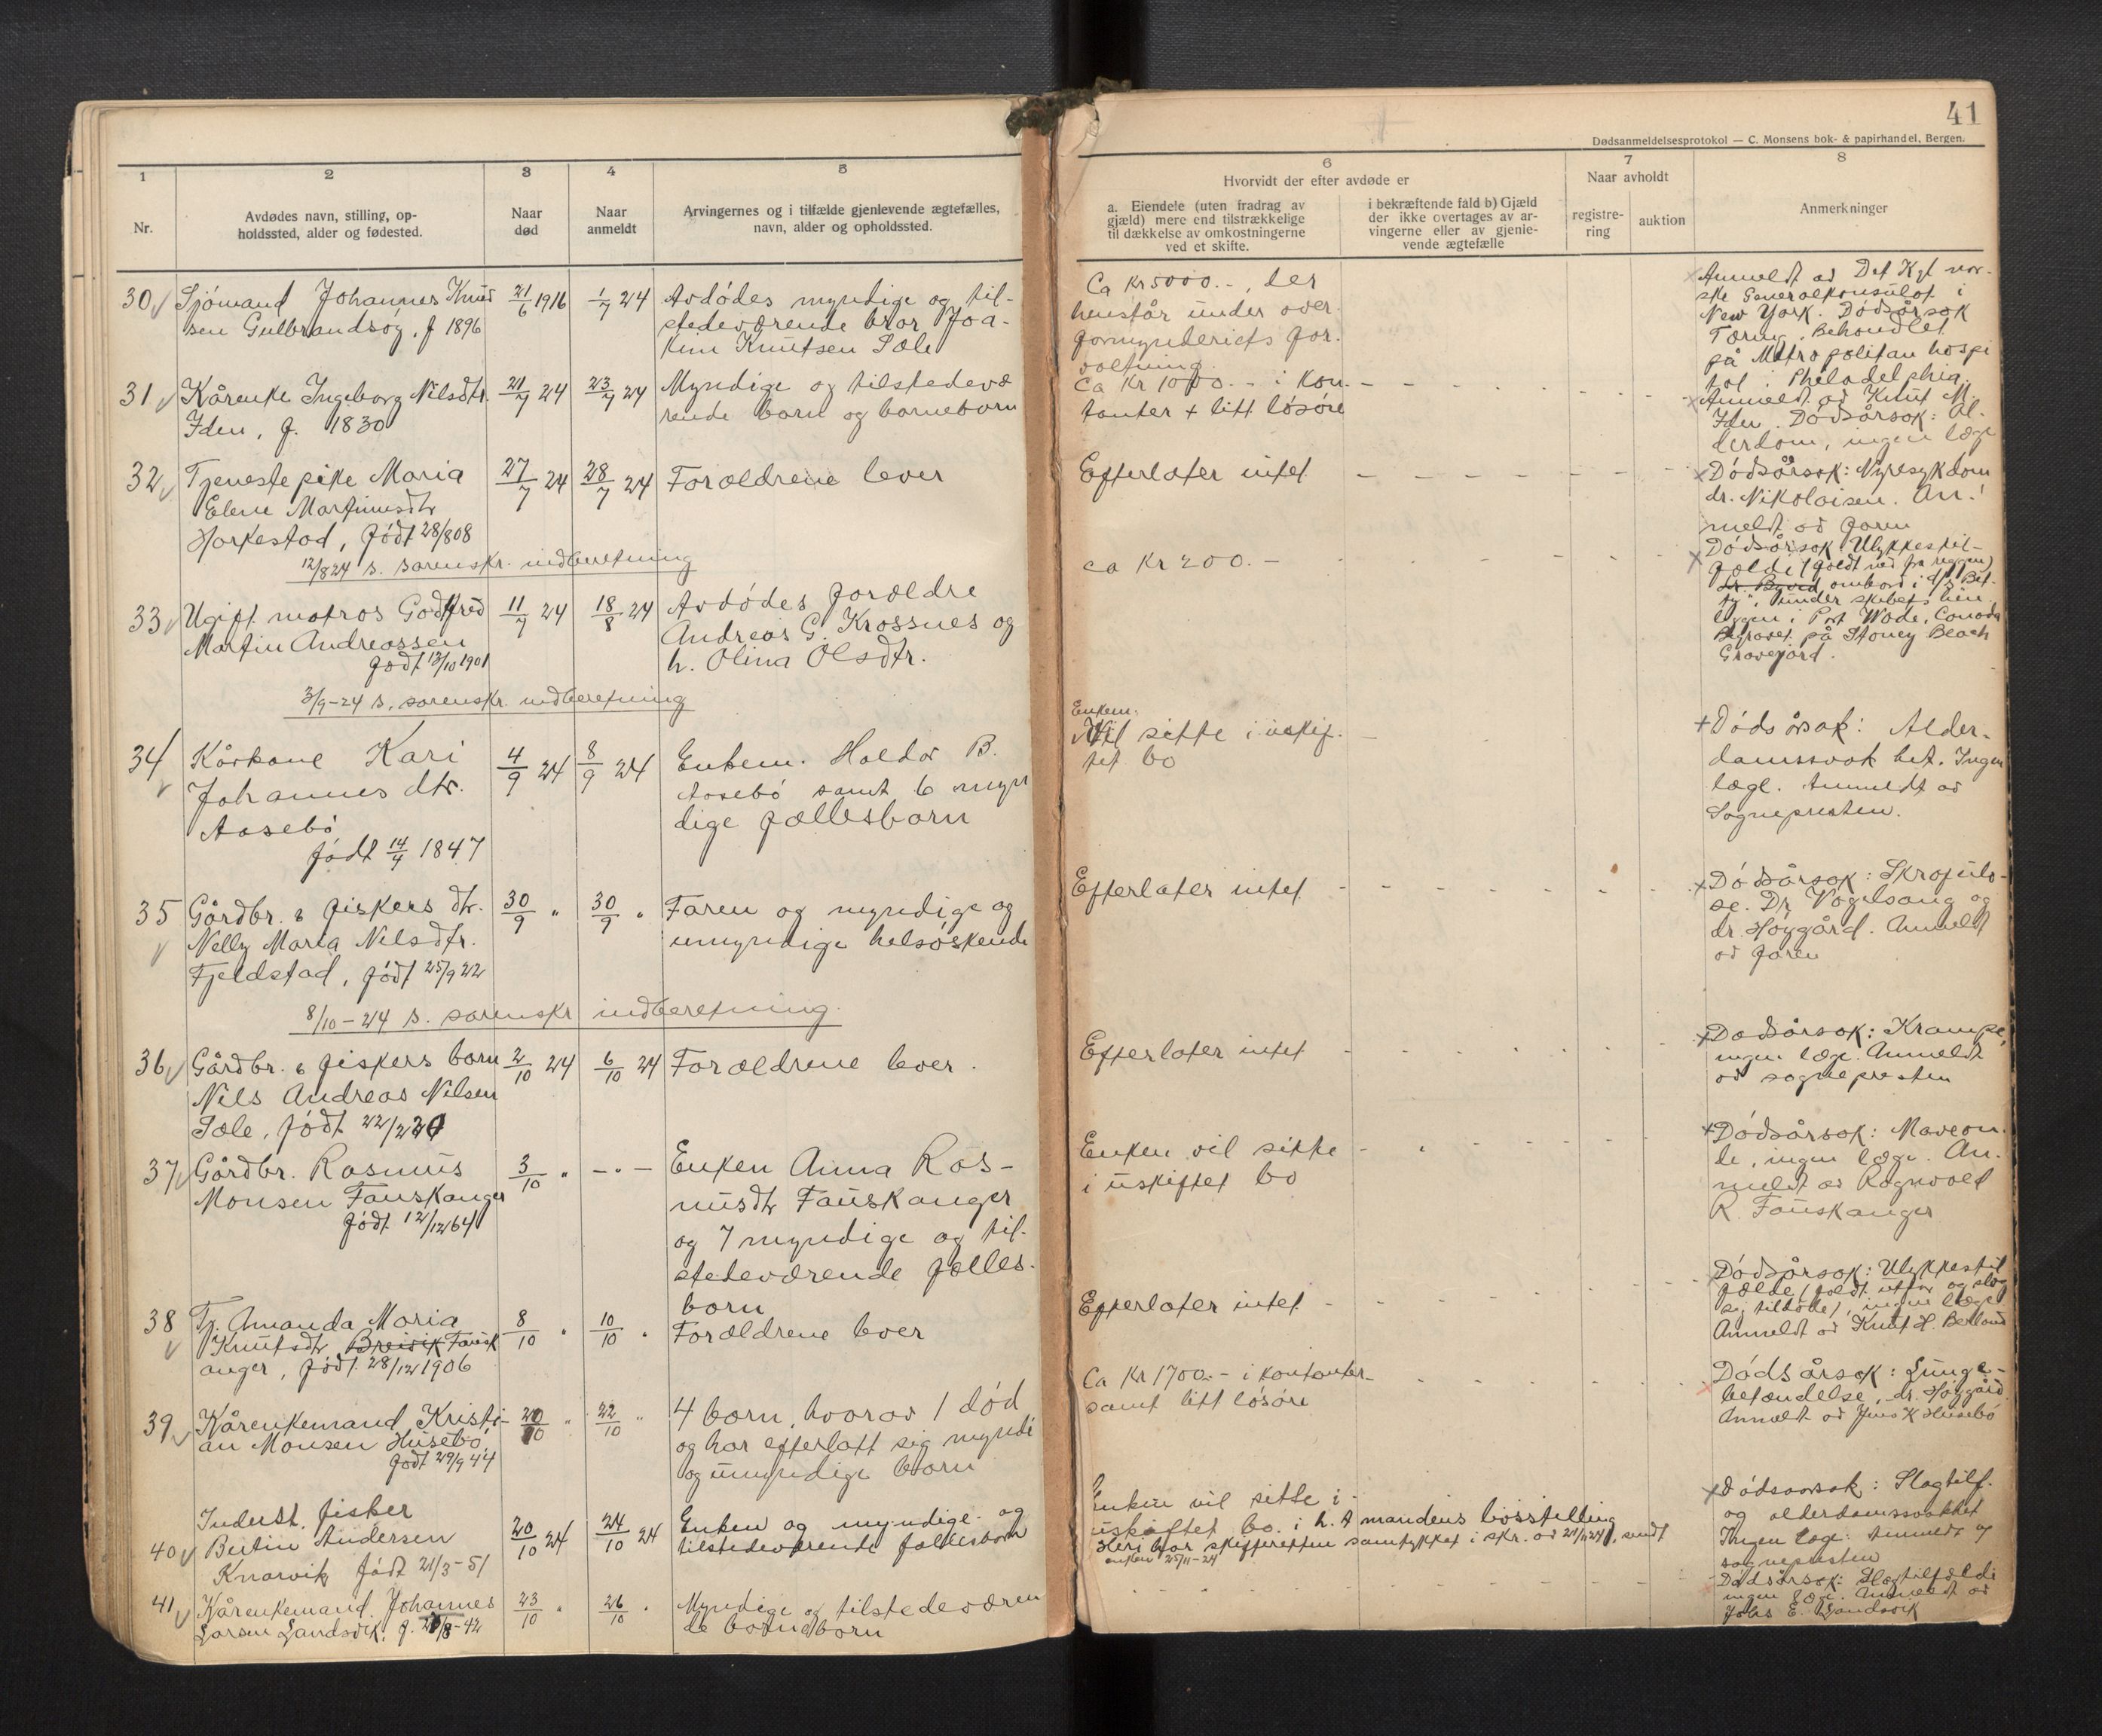 41
Dødsanmeldelsesprotokol — C. Monsens bok- & papirhandel, Bergen.
1
2
3
4
5
6
7
8
Nr.
Avdødes navn, stilling, op-
holdssted, alder og fødested.
Naar
død
Naar
anmeldt
Arvingernes og i tilfælde gjenlevende ægtefælles,
navn, alder og opholdssted.
Hvorvidt der efter avdøde er
a. Eiendele (uten fradrag av
gjæld) mere end tilstrækkelige
til dækkelse av omkostningerne
ved et skifte.
i bekræftende fald b) Gjæld
der ikke overtages av ar-
vingerne eller av gjenle-
vende ægtefælle
Naar avholdt
registre-
ring
auktion
Anmerkninger
30 Sjömand Johannes Knud
sen Gulbrandsøy, f 1896
21/6 1916
1/7 24
Avdödes myndige og til-
stedeværende bror Joa-
kim Knutsen Sæle
Ca kr 5000.-, der
henstår under over
formynderiets for-
valtning
Anmeldt av Det Kgl nor-
ske Generalkonsulat i
New York. Dødsårsak
Tæring. Behandlet
på Metropolitan hospi
tal i Philadelphia
31 Kårenke Ingeborg Nilsdtr.
Iden, f. 1830
21/7 24
23/7 24
Myndige og tilstedevæ
rende barn og barnebarn
Ca kr 1000.- i kon-
tanter + litt løsøre
Anmeldt av Knut M.
Iden. Dødsårsak: Al-
derdom, ingen læge
32 Tjenestepike Maria
Elene Martinusdtr
Harkestad, født 28/8 08
27/7 24
28/7 24
Forældrene lever
Efterlater intet
Dødsårsak: Nyresykdom
dr. Nikolaisen. An-
meldt av faren
12/8 24 s. sorenskr. indberetning
33 Ugift matros Godtfred
Martin Andreassen
født 13/10 1901
11/7 24
18/8 24
Avdödes forældre
Andreas G. Krossnes og
h. Olina Olsdtr.
ca kr 200.-
Dødsårsak: Ulykkestil-
fælde (faldt ned fra riggen)
ombord i d/s Bet-
ty", under skibets hen
liggen i Port Wade, Canada
Begravet på Stoney Beach
Gravgjord.
3/9-24 s. sorenskr. indberetning
34 Kårkone Kari
Johannesdtr.
Aasebö
født 14/4 1847
4/9 24
8/9 24
Enkem. Haldor B.
Aasebö samt 6 myn
dige fællesbarn
Enkem.
Vil sitte i uskif-
tet bo
Dødsårsak: Alder-
damssvak het. Ingen
lægl. Anmeldt av
Sognepresten.
35 Gårdbr. & fiskers dtr.
Nelly Maria Nilsdtr.
Fjeldstad, født 25/9 22
30/9 "
30/9 "
Faren og myndige og
umyndige helsøskende
Efterlater intet
Dødsårsak: Skrofulo-
se. Dr Vogelsang og
dr. Høygård. Anmeldt
av faren
8/10-24 s. sorenskr indberetning
36 Gårdbr. & fiskers barn
Nils Andreas Nilsen
Sæle, født 22/2 24
2/10 24
6/10 24
Forældrene lever.
Efterlater intet
Dødsårsak: Krampe,
ingen læge. Anmeldt
av sognepresten
37 Gårdbr. Rasmus
Monsen Fauskanger
født 12/12 64
3/10 "
— " —
Enken Anna Ras-
musdtr Fauskanger
og 7 myndige og til-
stedeværende fælles-
barn
Enken vil sitte
i uskiftet bo
Dødsårsak: Maveon-
de, ingen læge. An-
meldt av Ragnvald
R. Fauskanger
38 Tj. Amanda Maria
Knutsdtr Breivik Fausk
anger, født 28/12 1906
8/10 "
10/10 "
Forældrene lever
Efterlater intet
Dødsårsak: Ulykkestil
fælde (faldt utfor og slog
sig tildøde), ingen læge
Anmeldt av Knut H. Berland
39 Kårenkemand Kristi-
an Monsen Husebö,
født 29/9 44
20/10 "
22/10 "
4 barn, hvorav 1 død
og har efterlatt sig myndi
og umyndige barn
Ca kr 1700.- i kontanter
samt litt løsøre
Dødsårsak: Lunge-
betændelse, dr. Høygård
Anmeldt av Jens K Husebö
40 Inderst. fisker
Bertin Andersen
Knarvik født 21/3-51
20/10 24
24/10 24
Enken og myndige og
tilstedeværende fællesbarn
Enken vil sitte i
uskiftet bo. i h. t mandens bosstilling
Heri har skifteretten samtykket i skr. av 21/11 24, sendt
enken 25/11-24
Dødsaarsak: Slagtilf.
og alderdomssvakhet
Ingen læge. Anmeldt av
sognepresten
41 Kårenkemand Johannes
Larsen Landsvik, f. /8-42
23/10 "
26/10 "
Myndige og tilstedeværen
de barnebarn
Dødsårsak: Slagtilfælde
ingen læge. Anmeldt av
E. Landsvik